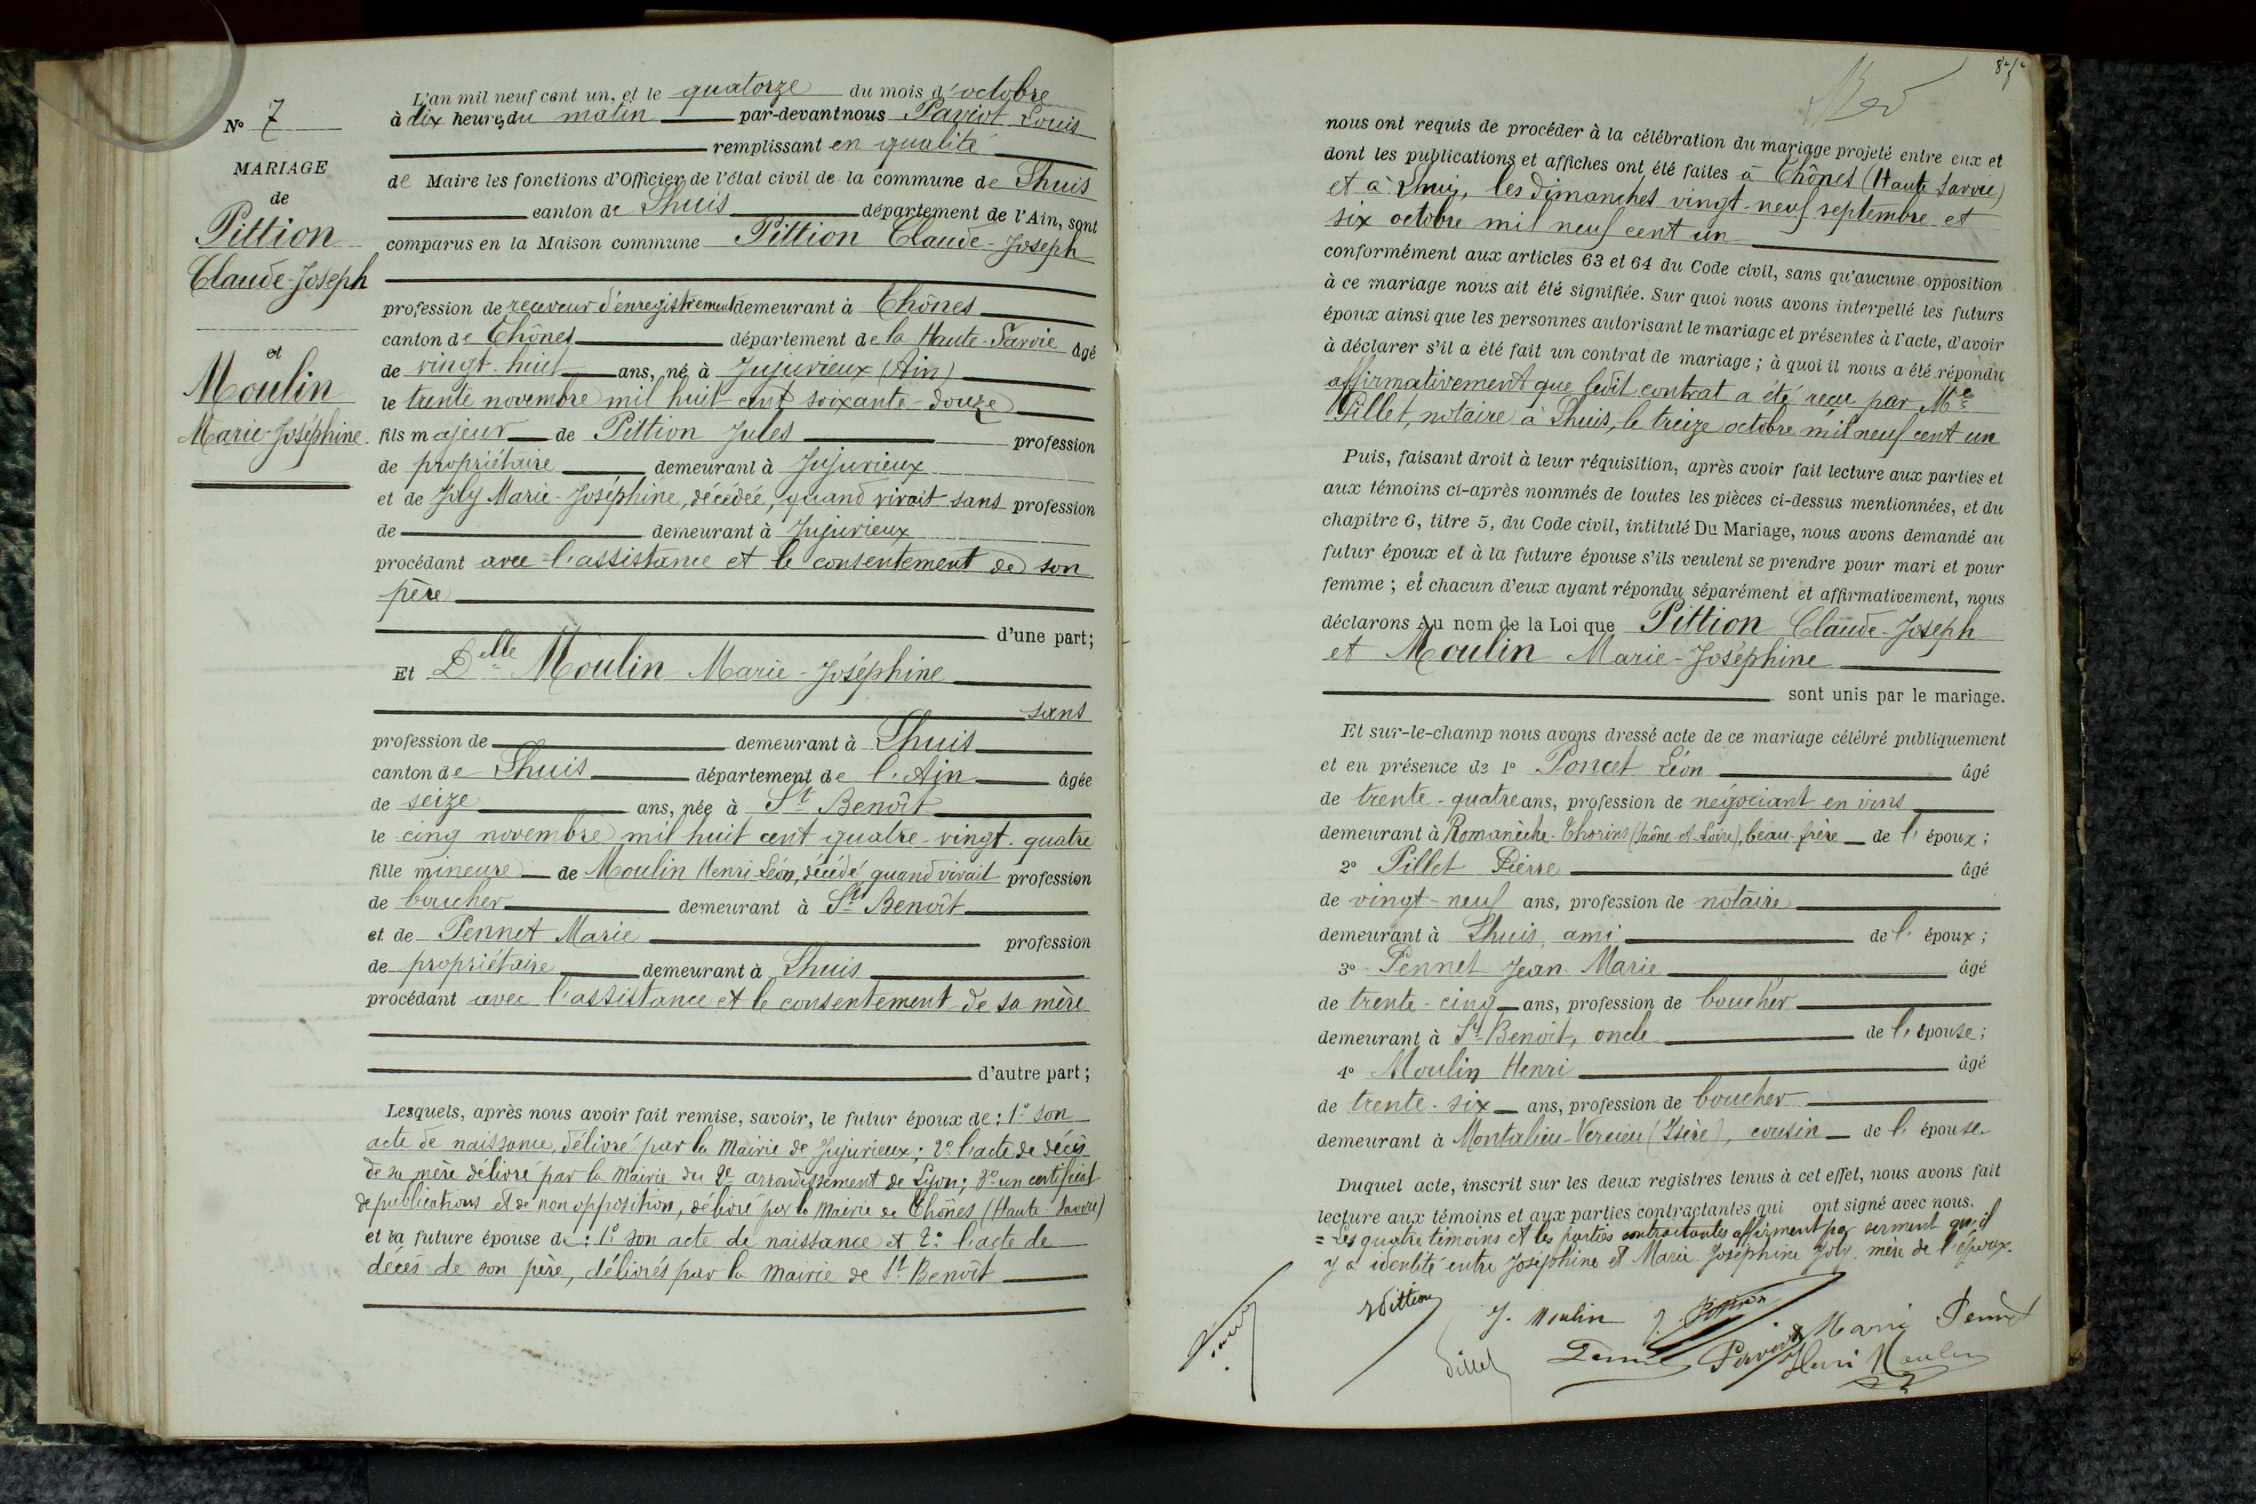 N° 7
MARIAGE
de
Pittion
Claude-Joseph
et
Moulin
Marie-Joséphine.
L'an mil neuf cent un, et le quatorze du mois d'octobre
à dix heures du matin par-devant nous Paviot Louis
remplissant en qualité
de Maire les fonctions d'Officier de l'état civil de la commune de Lhuis
canton de Lhuis département de l'Ain, sont
comparus en la Maison commune Pittion Claude-Joseph
profession de receveur d'enregistrement demeurant à Thônes
canton de Thônes département de la Haute-Savoie âgé
de vingt-huit ans, né à Jujurieux (Ain)
le trente novembre mil huit cent soixante-douze
fils majeur de Pittion Jules profession
de propriétaire demeurant à Jujurieux
et de Joly Marie-Joséphine, décédée, quand vivait sans profession
de demeurant à Jujurieux
procédant avec l'assistance et le consentement de son
père
d'une part;
Et Delle Moulin Marie-Joséphine
sans
profession de demeurant à Lhuis
canton de Lhuis département de l'Ain âgée
de seize ans, née à St Benoît
le cinq novembre mil huit cent quatre-vingt-quatre
fille mineure de Moulin Henri-Léon, décédé, quand vivait profession
de boucher demeurant à St Benoît
et de Pennet Marie profession
de propriétaire demeurant à Lhuis
procédant avec l'assistance et le consentement de sa mère
d'autre part;
Lesquels, après nous avoir fait remise, savoir, le futur époux de: 1° son
acte de naissance, délivré par la Mairie de Jujurieux; 2° l'acte de décès
de sa mère délivré par la Mairie du 2e arrondissement de Lyon; 3° un certificat
de publications et de non opposition, délivré par la Mairie de Thônes (Haute-Savoie)
et la future épouse de: 1° son acte de naissance et 2° l'acte de
décès de son père, délivrés par la Mairie de St Benoît
nous ont requis de procéder à la célébration du mariage projeté entre eux et
dont les publications et affiches ont été faites à Thônes (Haute Savoie)
et à Lhuis, les dimanches vingt-neuf septembre et
six octobre mil neuf cent un
conformément aux articles 63 et 64 du Code civil, sans qu'aucune opposition
à ce mariage nous ait été signifiée. Sur quoi nous avons interpellé les futurs
époux ainsi que les personnes autorisant le mariage et présentes à l'acte, d'avoir
à déclarer s'il a été fait un contrat de mariage; à quoi il nous a été répondu
affirmativement que ledit contrat a été reçu par Me
Pillet, notaire à Lhuis, le treize octobre mil neuf cent un
Puis, faisant droit à leur réquisition, après avoir fait lecture aux parties et
aux témoins ci-après nommés de toutes les pièces ci-dessus mentionnées, et du
chapitre 6, titre 5, du Code civil, intitulé Du Mariage, nous avons demandé au
futur époux et à la future épouse s'ils veulent se prendre pour mari et pour
femme; et chacun d'eux ayant répondu séparément et affirmativement, nous
déclarons Au nom de la Loi que Pittion Claude-Joseph
et Moulin Marie-Joséphine
sont unis par le mariage.
Et sur-le-champ nous avons dressé acte de ce mariage célébré publiquement
et en présence de 1° Poncet Léon âgé
de trente-quatre ans, profession de négociant en vins
demeurant à Romanèche-Thorins (Saône-et-Loire), beau-frère de l'époux;
2° Pillet Pierre âgé
de vingt-neuf ans, profession de notaire
demeurant à Lhuis, ami de l'époux;
3° Pennet Jean-Marie âgé
de trente-cinq ans, profession de boucher
demeurant à St Benoit, oncle de l'épouse;
4° Moulin Henri âgé
de trente-six ans, profession de boucher
demeurant à Montalieu-Vercieu (Isère), cousin de l'épouse.
Duquel acte, inscrit sur les deux registres tenus à cet effet, nous avons fait
lecture aux témoins et aux parties contractantes qui ont signé avec nous.
= Les quatre témoins et les parties contractantes affirment par serment qu'il
y a identité entre Joséphine et Marie-Joséphine Joly, mère de l'époux.
Pittion J. Moulin J. Pittion Marie Pennet
Pillet Pennet Paviot Henri Moulin